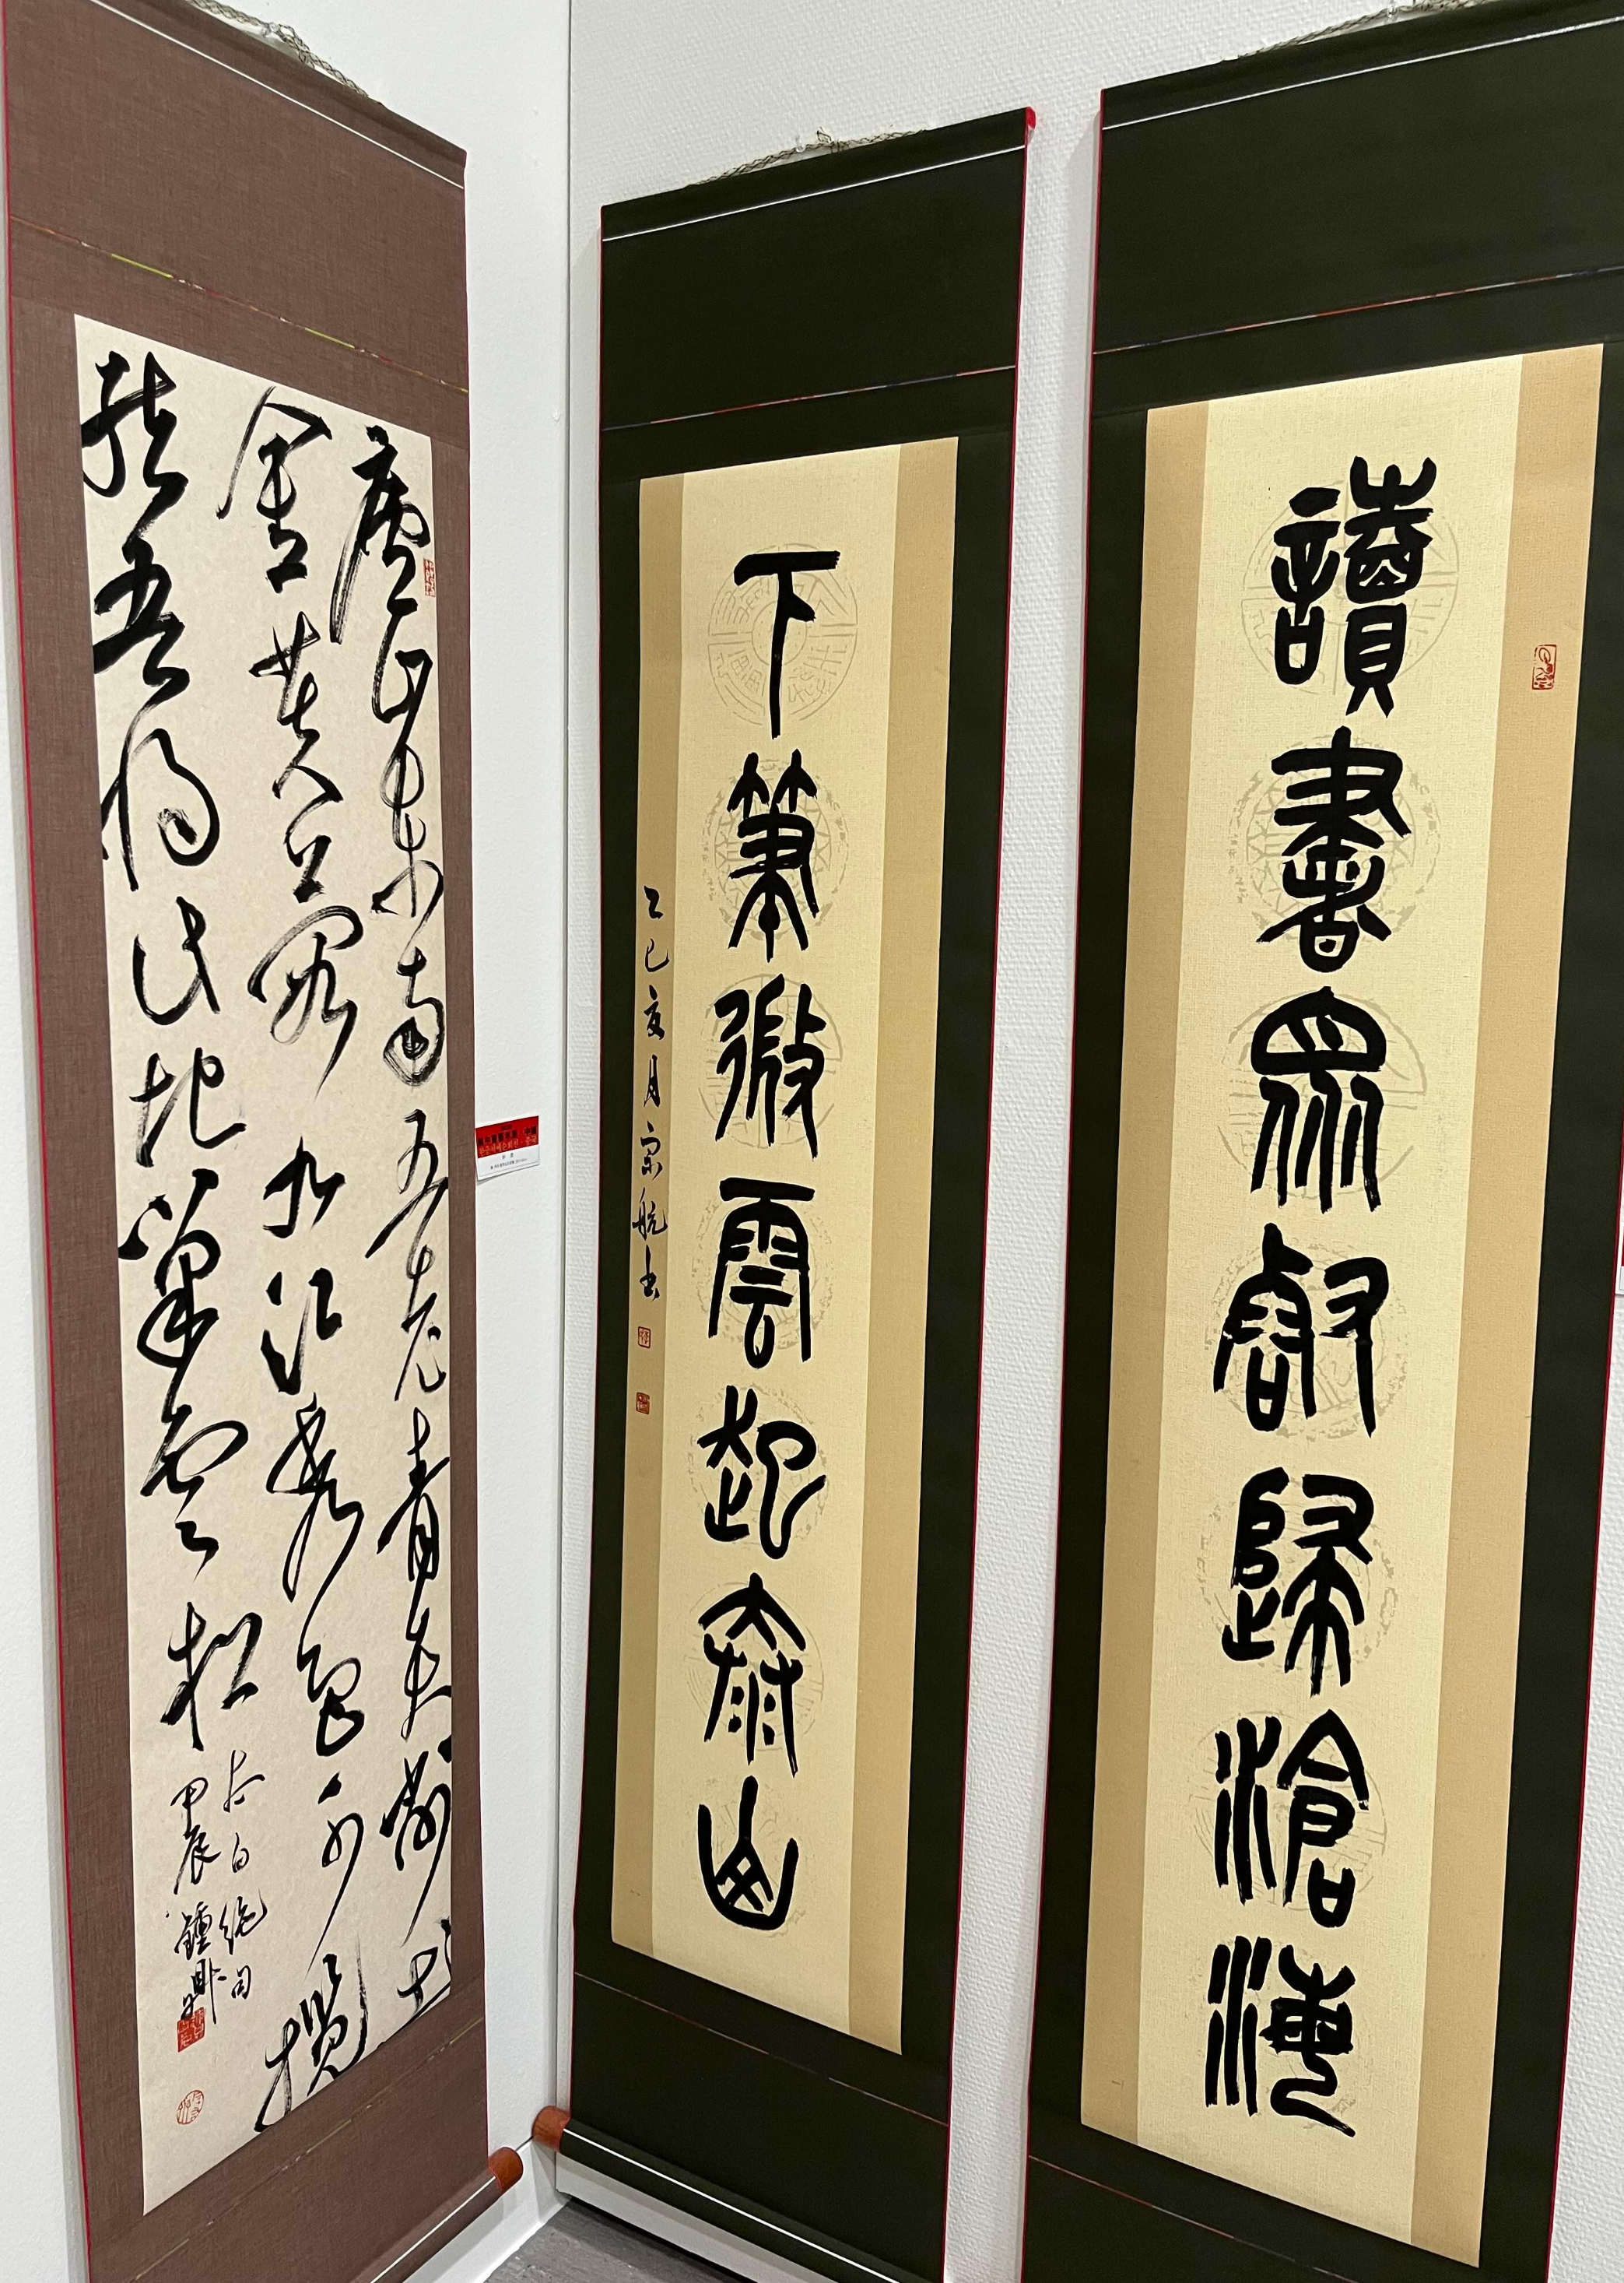 讀書眾壑歸滄海
下筆微雲起泰山
乙巳夏月宗航书
廬山東南五老青天削出
金芙蓉九江秀色可攬
結吾將此地巢雲松
太白絕句
甲辰鍾鼎